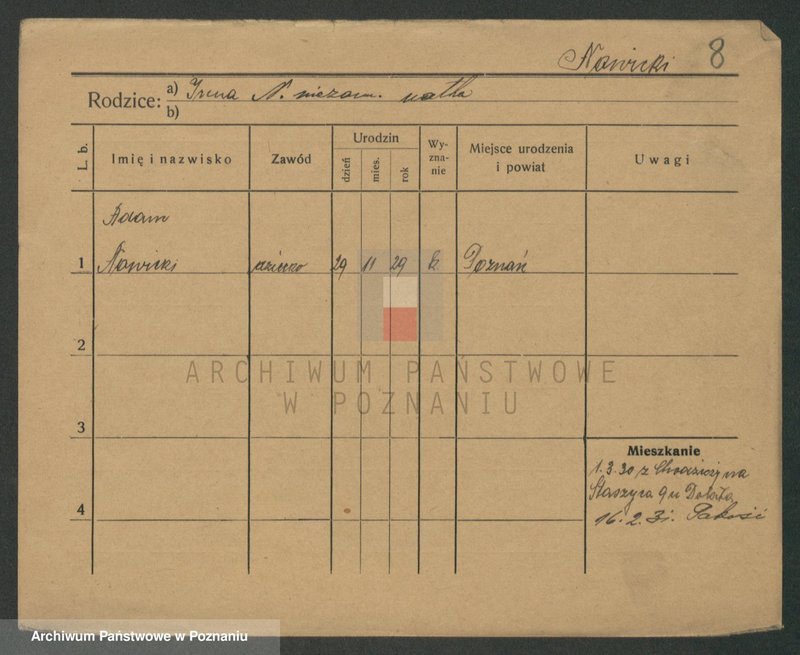 Nawicki 8
Rodzice: a) Irena N. niezam. matka
b)
L. b.
Imię i nazwisko
Zawód
Urodzin
dzień
mies.
rok
Wy-
zna-
nie
Miejsce urodzenia
i powiat
Uwagi
Adam
1 Nawicki dziecko 29 11 29 k. Poznań
2
3
Mieszkanie
1.3.30 z Chodzieży na
Staszyca 9 u
4
16.2.31. Pakość
ARCHIWUM PAŃSTWOWE
W POZNANIU
Archiwum Państwowe w Poznaniu